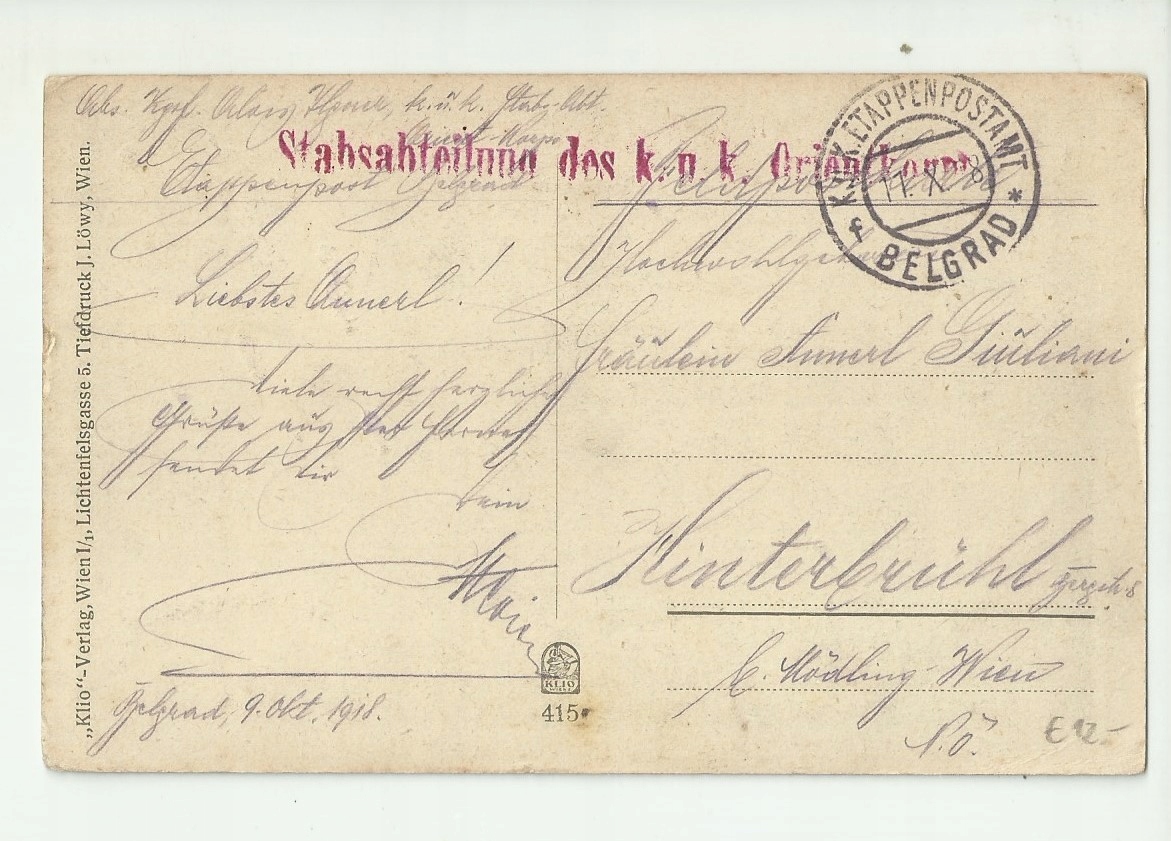 k. u. k. Stabs-Abt.
Orient-Korps
Etappenpost Belgrad
Stabsabteilung des k. u. k. Orientkorps
Feldpost
K. u. K. ETAPPENPOSTAMT
11. X. 18
f BELGRAD *
Liebstes Annerl!
Viele recht herzliche
Grüße aus der Ferne
sendet dir
dein
Belgrad, 9. Okt. 1918.
Hochwohlgeboren
Fräulein Annerl Giuliani
Hinterbrühl
b. Mödling Wien
N.Ö.
€ 12-
KLIO
WIEN
415
„Klio“-Verlag, Wien I/1, Lichtenfelsgasse 5. Tiefdruck J. Löwy, Wien.